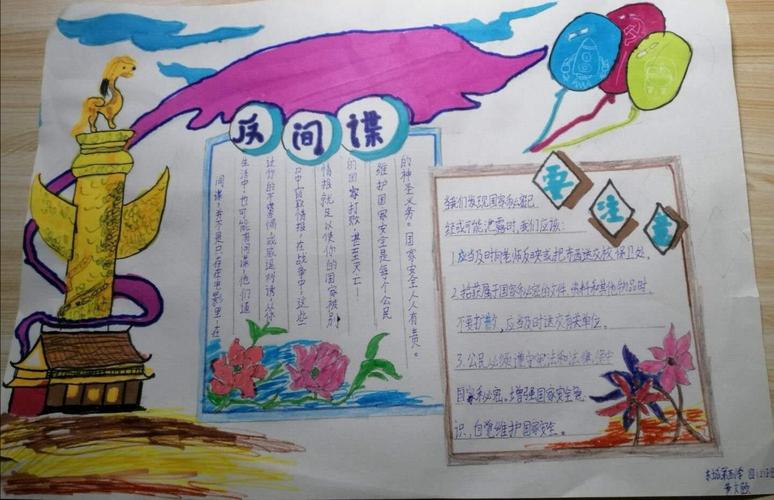 反间谍
间谍,并不是只存在电影里,在
生活中,也可能有间谍,他们通
过你的不谨慎或威逼利诱从你
口中窃取情报,在战争中,这些
情报就足以使你的国家被别
的国家打败,甚至灭亡!
维护国家安全是每个公民
的神圣义务。国家安全人人有责。
要注意
当我们发现国家秘密已
经或可能泄露时,我们应该:
1.应当及时向老师反映或把书面送交校保卫处。
2.拾获属于国家秘密的文件、资料和其他物品时,
不要扩散,应当及时送交有关单位。
3.公民必须遵守宪法和法律,保守
国家秘密。增强国家安全意
识,自觉维护国家安全。